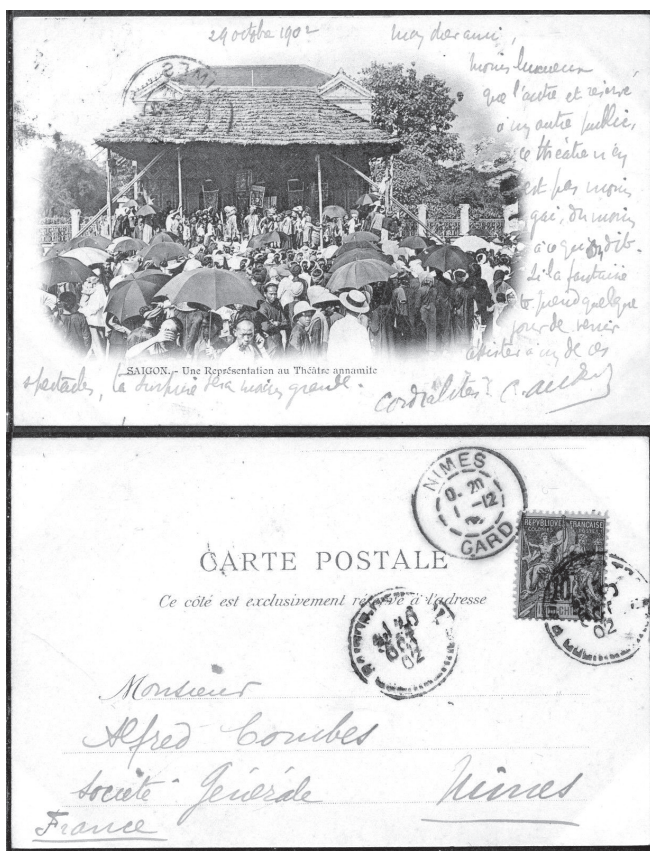 29 octobre 1902
mon cher ami,
moins luxueux
que l'autre et réservé
à un autre public,
ce théâtre n'en
est pas moins
gai, du moins
à ce qu'on dit.
Si la fantaisie
te prend quelque
jour de venir
assister à un de ces
spectacles, la surprise sera moins grande.
cordialités
SAIGON. - Une Représentation au Théâtre annamite
NIMES
1 -12
GARD
REPUBLIQUE FRANÇAISE
CARTE POSTALE
Ce côté est exclusivement réservé à l'adresse
02
02
Monsieur
Alfred Combes
Société Générale
Nîmes
France